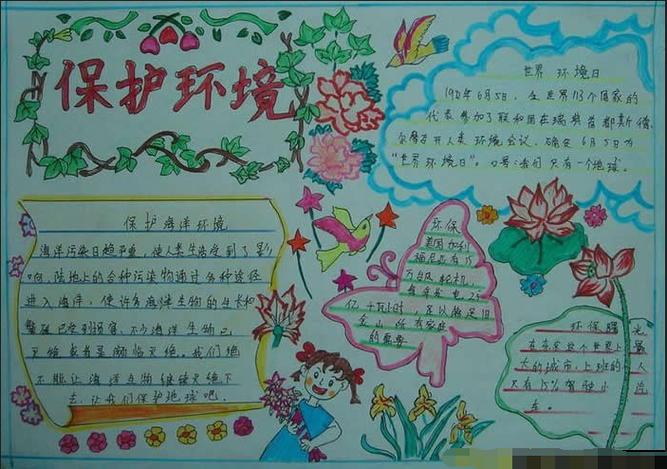 保护环境
世界 环境日
1972年6月5日,在世界113个国家的
代表参加了联和国在瑞典首都斯德
尔摩召开人类环境会议,确定6月5日为
“世界环境日”。口号:我们只有一个地球。
保护海洋环境
海洋污染日趋严重,使人类生活受到了影
响,陆地上的各种污染物通过各种途径
进入海洋,使许多海洋生物的生长和
繁殖已受到损害,不少海洋生物已
灭绝或者是濒临灭绝。我们绝
不能让海洋生物继续灭绝下
去,让我们保护地球吧。
环保
美国加利
福尼亚有15
万级机,
每年发电24
亿千瓦小时,足以满足旧
金山所有家庭
的需要
环保曙光
在东京这个世界上最
大的城市,上班的人
只有15%驾驶小汽
车。